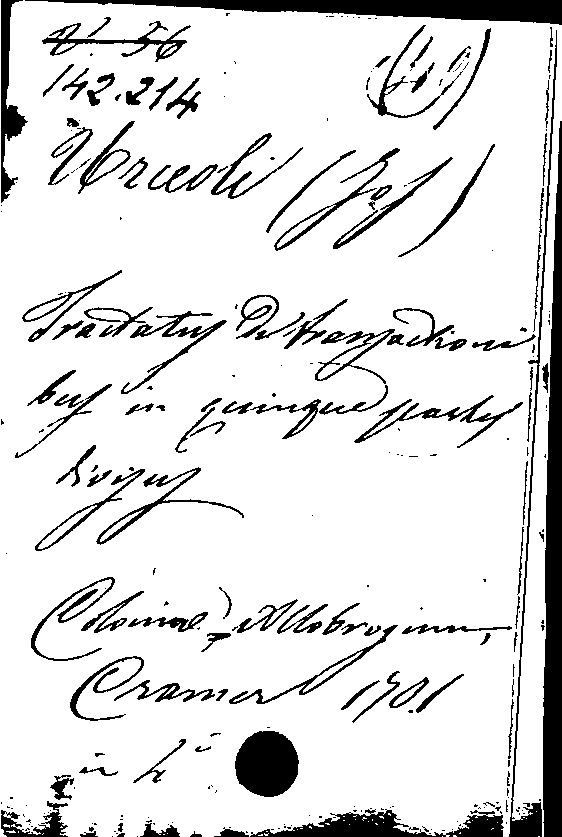 V. 56
142.214
Urceoli (Jos)
Tractatus De transactioni
bus in quinque partes
divisus
Coloniae Allobrogum,
Cramer 1701
in 4°